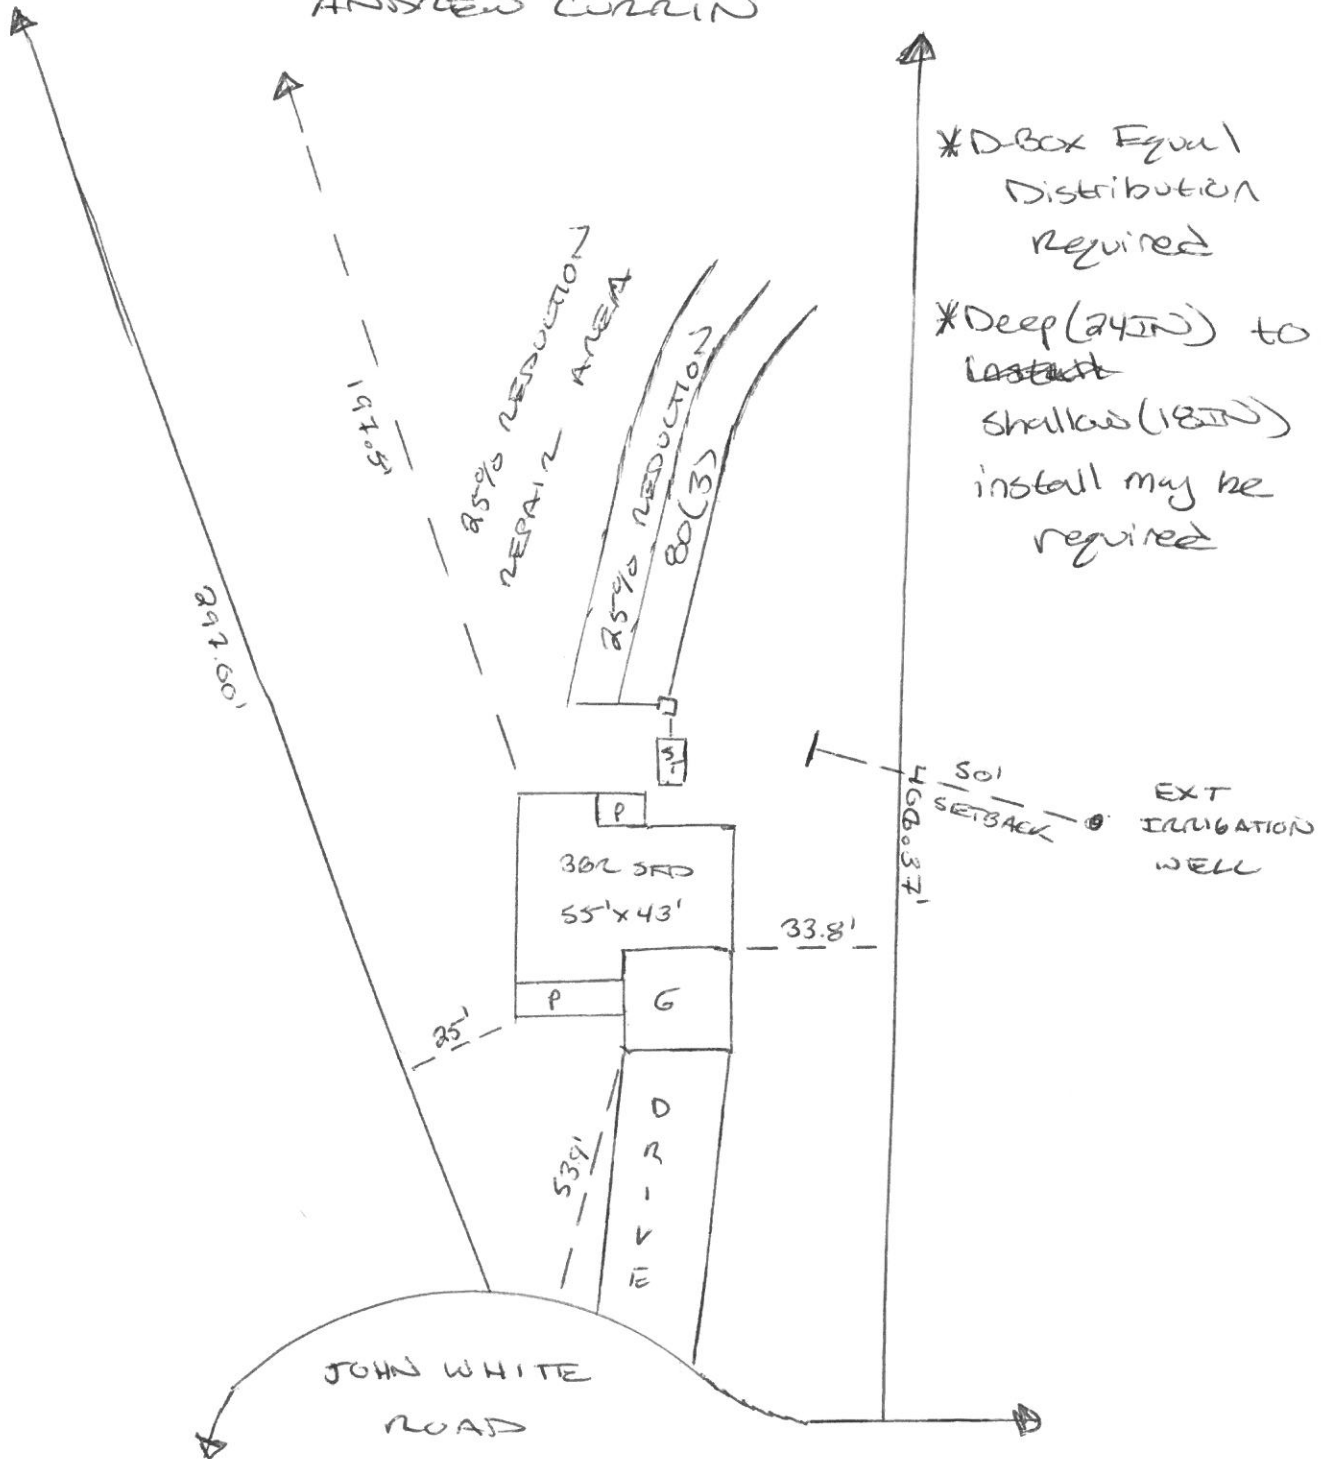 ANDREW CURRIN
*D-Box Equal
Distribution
Required
*Deep (24IN) to
shallow (18IN)
install may be
required
25% REDUCTION
REPAIR AREA
25% REDUCTION
80(3)
197.5'
297.00'
ST
50'
SETBACK
EXT
IRRIGATION
WELL
468.37'
P
3BR SFD
55'x43'
33.8'
P
G
25'
53.9'
DRIVE
JOHN WHITE
ROAD